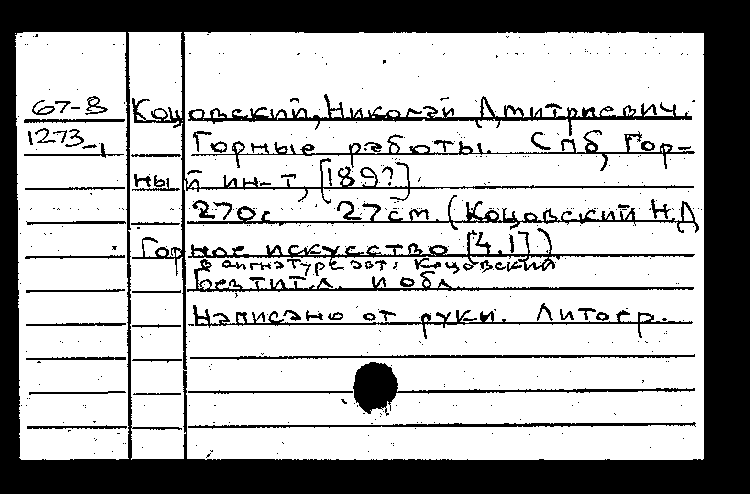 67-8 Коцовский, Николай Дмитриевич.
1273-1 Горные работы. СПб, Гор-
ный ин-т, [189?].
270с. 27см. (Коцовский Н.Д
Горное искусство [Ч.1])
В сигнатуре авт: Коцовский
Без тит.л. и обл.
Написано от руки. Литогр.